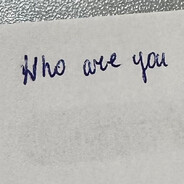 Who are you